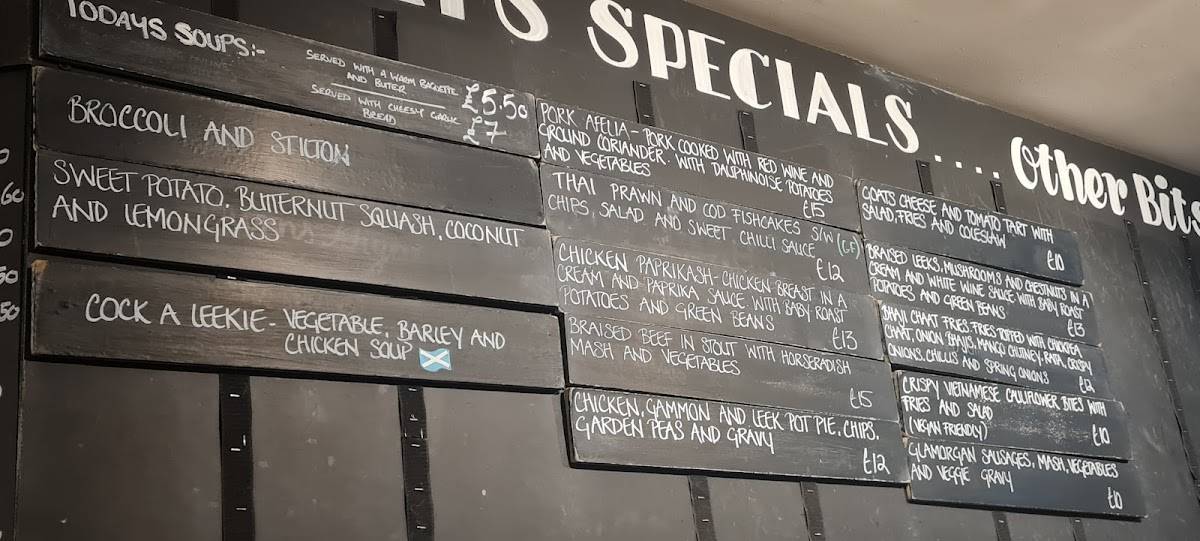 SPECIALS .... Other Bits
TODAYS SOUPS:-
SERVED WITH A WARM BAGUETTE
AND BUTTER
£5.50
SERVED WITH CHEESY GARLIC
BREAD
£7
BROCCOLI AND STILTON
SWEET POTATO, BUTTERNUT SQUASH, COCONUT
AND LEMONGRASS
COCK A LEEKIE - VEGETABLE, BARLEY AND
CHICKEN SOUP
PORK AFELIA - PORK COOKED WITH RED WINE AND
GROUND CORIANDER. WITH DAUPHINOISE POTATOES
AND VEGETABLES
£15
THAI PRAWN AND COD FISHCAKES S/W (GF)
CHIPS, SALAD AND SWEET CHILLI SAUCE
£12
CHICKEN PAPRIKASH - CHICKEN BREAST IN A
CREAM AND PAPRIKA SAUCE WITH BABY ROAST
POTATOES AND GREEN BEANS
£13
BRAISED BEEF IN STOUT WITH HORSERADISH
MASH AND VEGETABLES
£15
CHICKEN, GAMMON AND LEEK POT PIE, CHIPS,
GARDEN PEAS AND GRAVY
£12
GOATS CHEESE AND TOMATO TART WITH
SALAD, FRIES AND COLESLAW
£10
BRAISED LEEKS, MUSHROOMS AND CHESTNUTS IN A
CREAM AND WHITE WINE SAUCE WITH BABY ROAST
POTATOES AND GREEN BEANS
£13
BHAJI CHAAT FRIES. FRIES TOPPED WITH CHICKPEA
CHAAT, ONION BHAJIS, MANGO CHUTNEY, RAITA, CRISPY
ONIONS, CHILLIS AND SPRING ONIONS
£12
CRISPY VIETNAMESE CAULIFLOWER BITES WITH
FRIES AND SALAD
(VEGAN FRIENDLY)
£10
GLAMORGAN SAUSAGES, MASH, VEGETABLES
AND VEGGIE GRAVY
£10